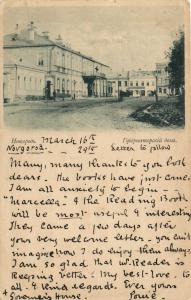 Новгородъ. Губернаторскiй домъ.
March 16th
Novgorod — 29th
Letter to follow
Many, many thanks to you both
dears. The books have just come.
I am all anxiety to begin —
"Marcella" & the Reading Book
will be most useful & interesting
They came a few days after
your very welcome letter. you can't
imagine how I do enjoy them always
I am so glad that Mr. Reader is
keeping better. My best love to
all & kind regards. Ever yours
Governor's house. Fome.